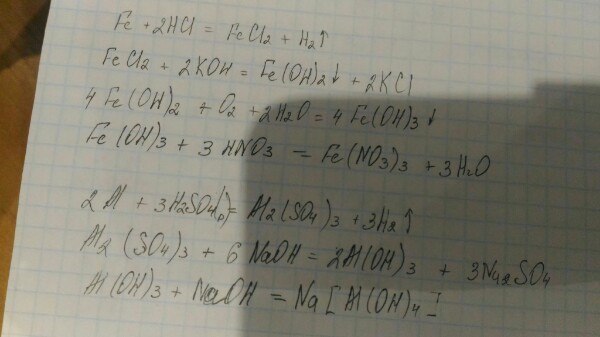 Fe + 2HCl = FeCl2 + H2↑
FeCl2 + 2KOH = Fe(OH)2↓ + 2KCl
4Fe(OH)2 + O2 + 2H2O = 4Fe(OH)3↓
Fe(OH)3 + 3HNO3 = Fe(NO3)3 + 3H2O
2Al + 3H2SO4(р) = Al2(SO4)3 + 3H2↑
Al2(SO4)3 + 6NaOH = 2Al(OH)3 + 3Na2SO4
Al(OH)3 + NaOH = Na[Al(OH)4]